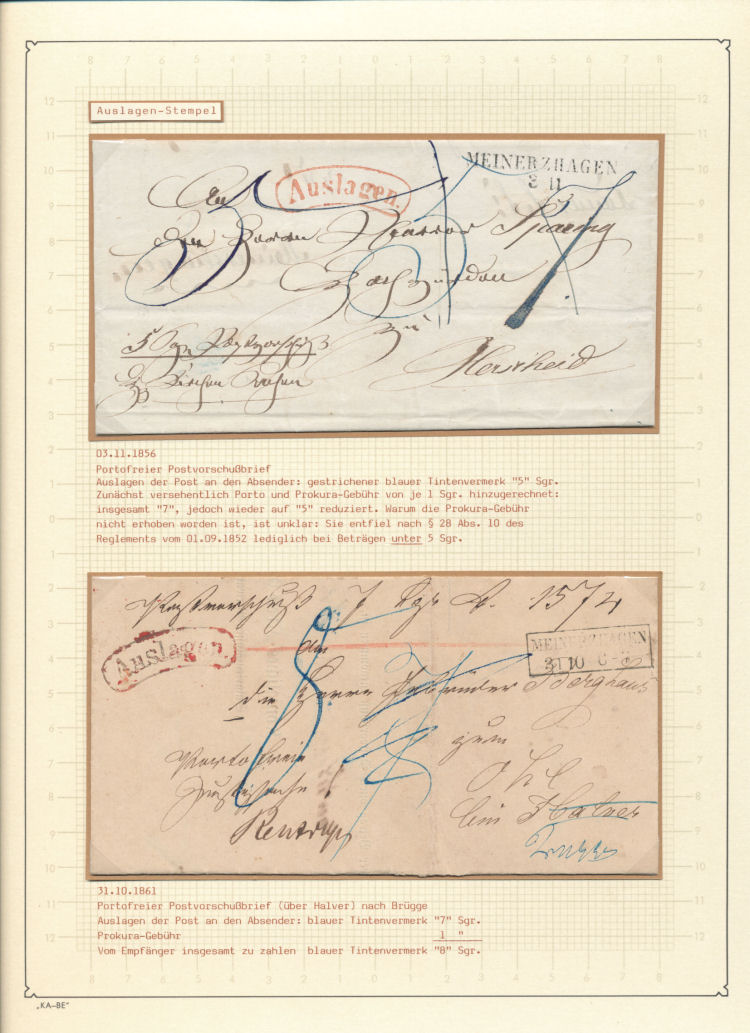 Auslagen-Stempel
Auslagen.
MEINERZHAGEN
3 11
An
den Herrn Pfarrer
zu
Herscheid
5 Sgr Postvorschuß
03.11.1856
Portofreier Postvorschußbrief
Auslagen der Post an den Absender: gestrichener blauer Tintenvermerk "5" Sgr.
Zunächst versehentlich Porto und Prokura-Gebühr von je 1 Sgr. hinzugerechnet:
insgesamt "7", jedoch wieder auf "5" reduziert. Warum die Prokura-Gebühr
nicht erhoben worden ist, ist unklar: Sie entfiel nach § 28 Abs. 10 des
Reglements vom 01.09.1852 lediglich bei Beträgen unter 5 Sgr.
Postvorschuß 7 Sgr 1574
Auslagen.
MEINERZHAGEN
31 10
8
an
die Herren Gebrüder Berghaus
zum
Ohl
bei Halver
Brügge
Portofreie
Justizsache
31.10.1861
Portofreier Postvorschußbrief (über Halver) nach Brügge
Auslagen der Post an den Absender: blauer Tintenvermerk "7" Sgr.
Prokura-Gebühr 1 "
Vom Empfänger insgesamt zu zahlen blauer Tintenvermerk "8" Sgr.
„KA-BE"